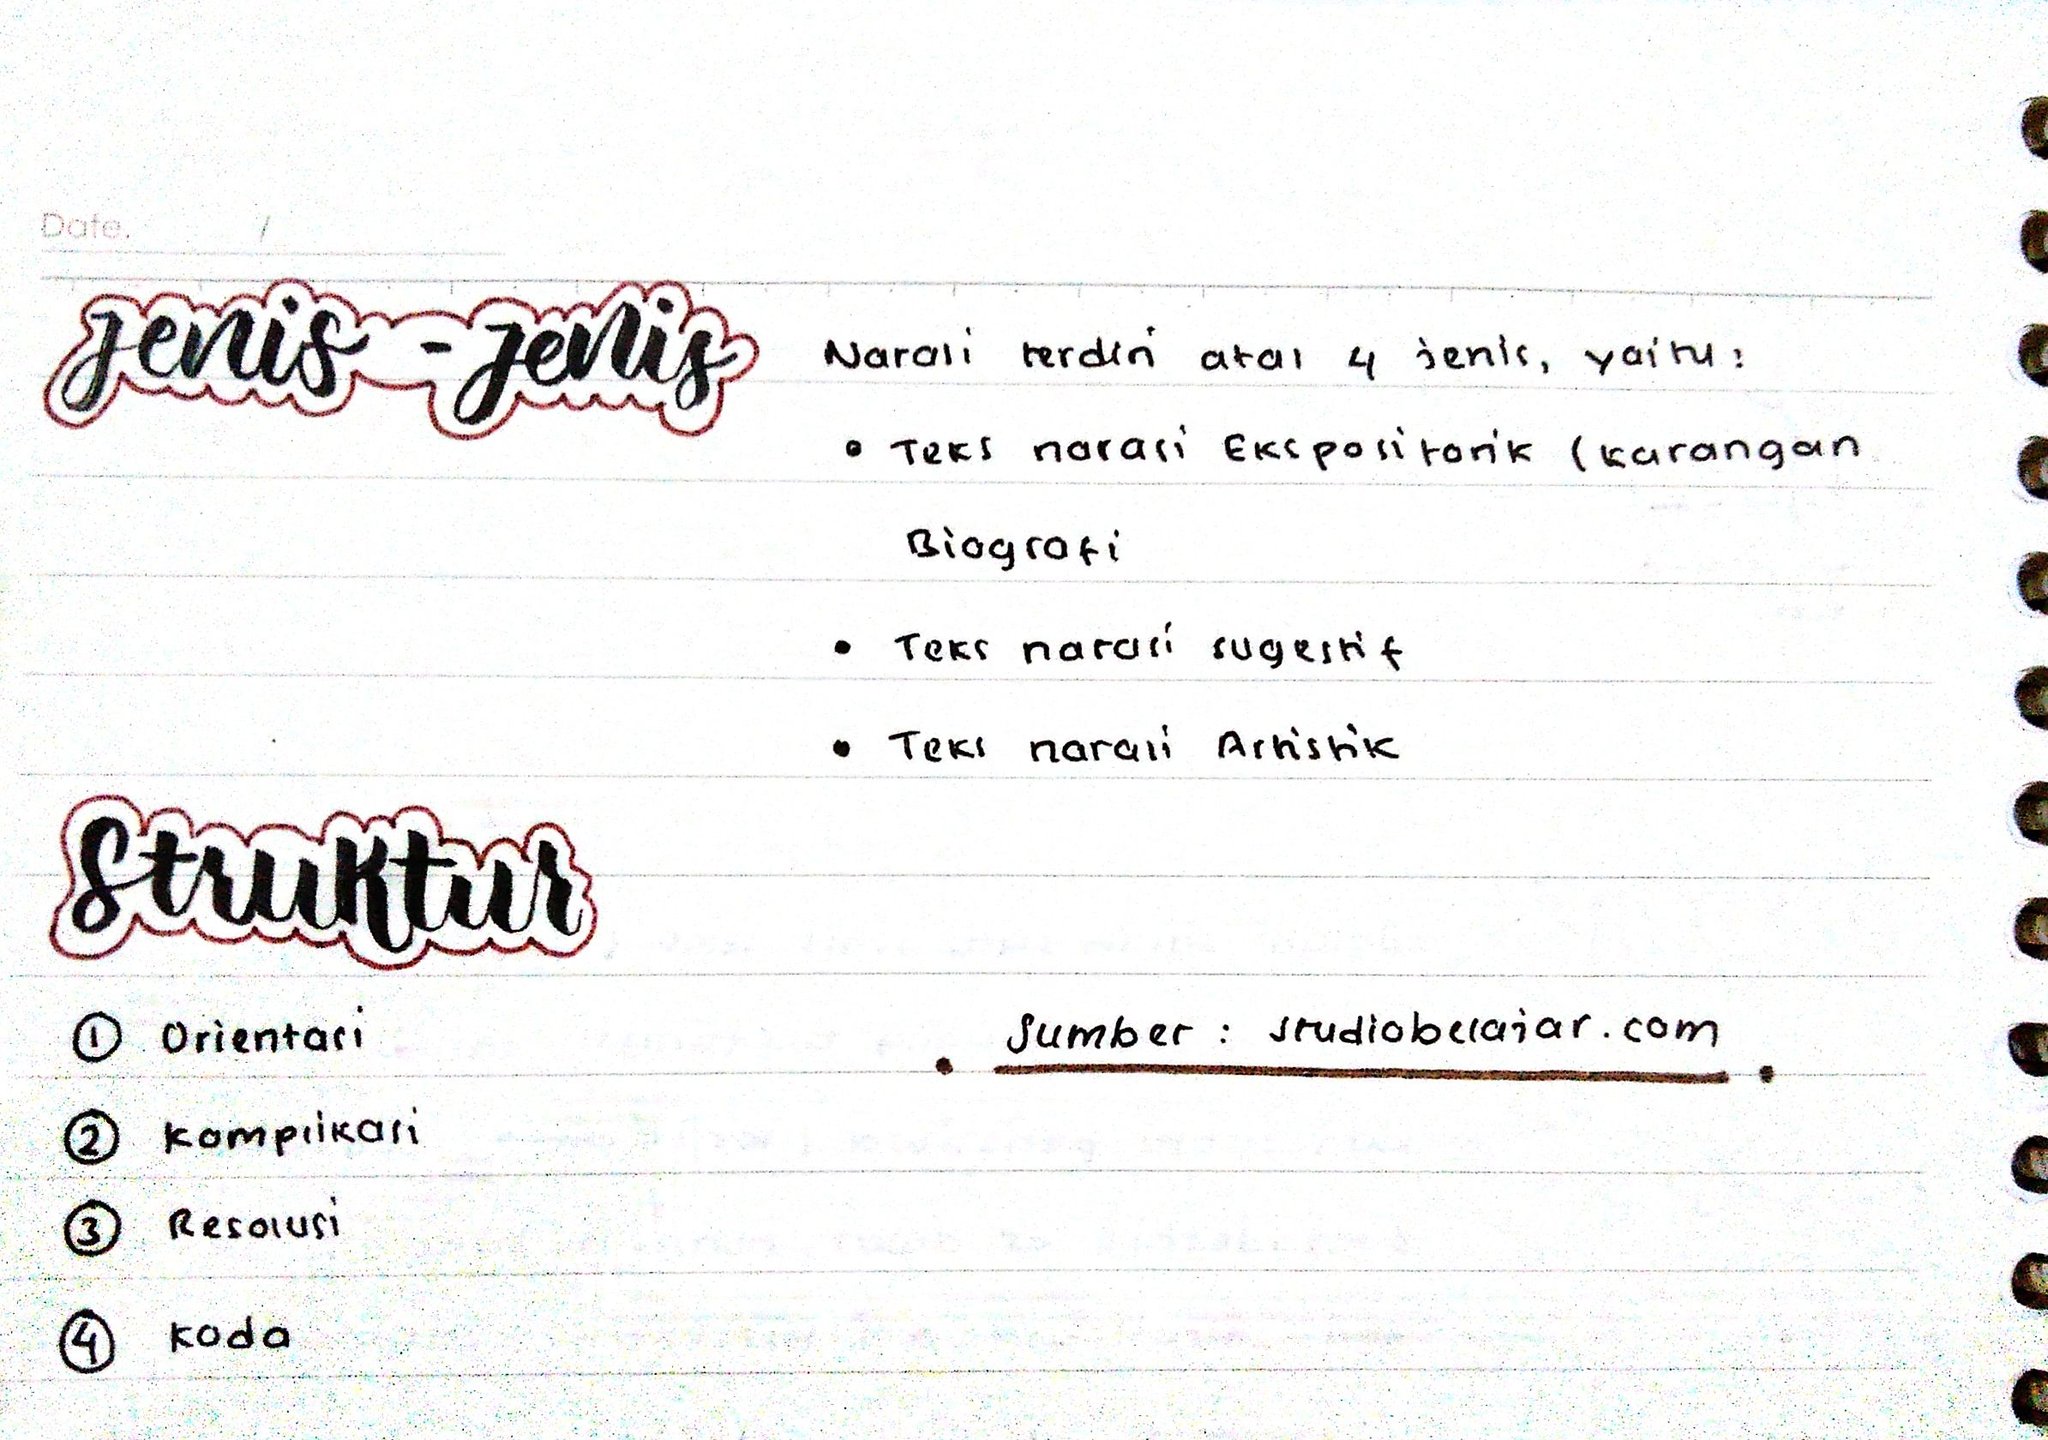 Date. /
Jenis - Jenis
Narasi terdiri atas 4 jenis, yaitu :
• Teks narasi Ekspositorik (karangan
Biografi
• Teks narasi sugestif
• Teks narasi Artistik
Struktur
① Orientasi
② Komplikasi
③ Resolusi
④ Koda
Sumber : studiobelajar.com